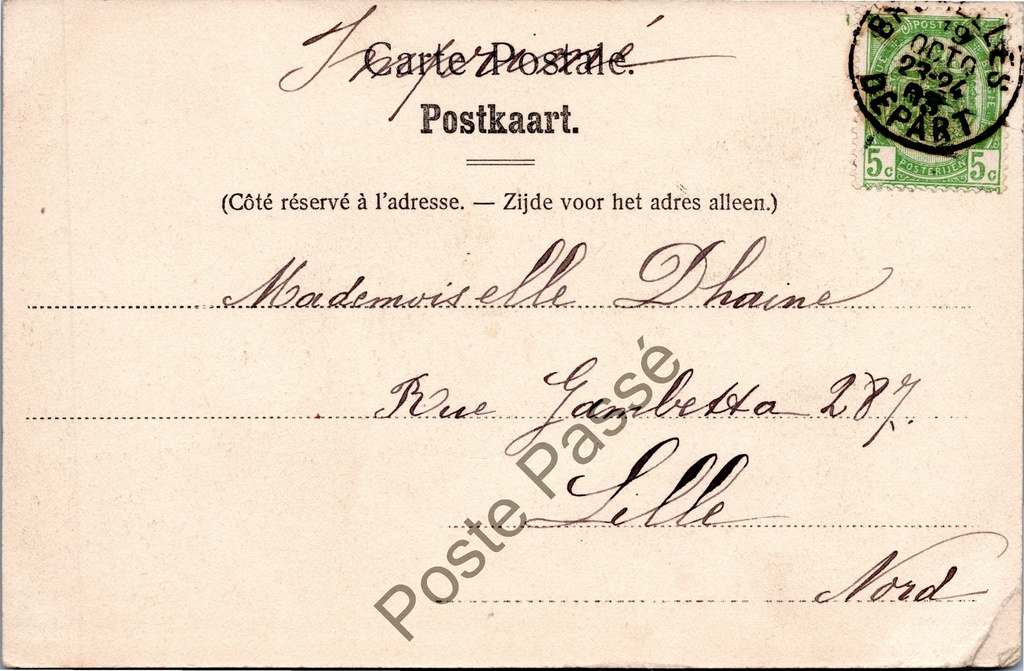 Imprimé
Carte Postale.
Postkaart.
(Côté réservé à l'adresse. — Zijde voor het adres alleen.)
Mademoiselle Dhaine
Rue Gambetta 287.
Lille
Nord
POSTES
5c POSTERIJEN 5c
19
OCTO
23-24
DEPART
Poste Passé